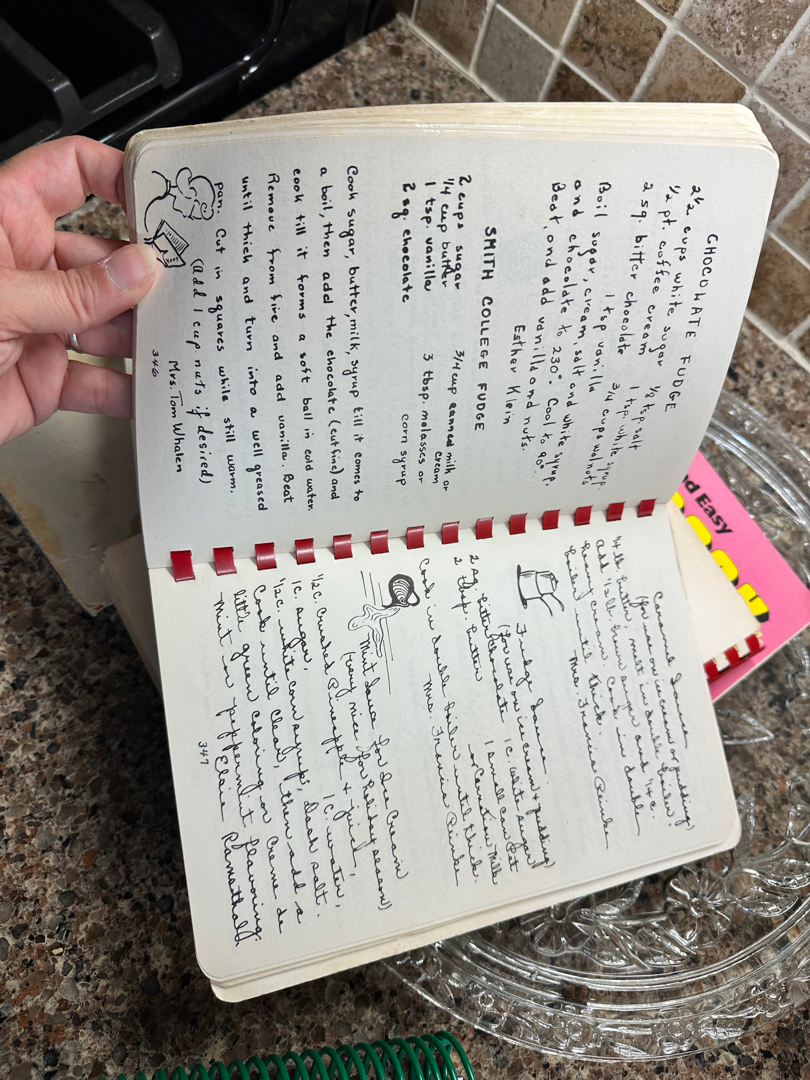 CHOCOLATE FUDGE
2 1/2 cups white sugar 1/8 tsp. salt
1/2 pt. coffee cream 1 tsp. white syrup
2 sq. bitter chocolate 3/4 cups walnuts
1 tsp vanilla
Boil sugar, cream, salt and white syrup.
and chocolate to 230°. Cool to 90°
Beat, and add vanilla and nuts.
Esther Klein
SMITH COLLEGE FUDGE
2 cups sugar 3/4 cup canned milk or
1/4 cup butter cream
1 tsp. vanilla 3 tbsp. molasses or
2 sq. chocolate corn syrup
Cook sugar, butter, milk, syrup till it comes to
a boil, then add the chocolate (cut fine) and
cook till it forms a soft ball in cold water.
Remove from fire and add vanilla. Beat
until thick and turn into a well greased
pan. Cut in squares while still warm.
(add 1 cup nuts if desired)
Mrs. Tom Whalen
346
Caramel Sauce
(for use on ice cream or pudding)
1/4 lb. butter, melt in double boiler.
Add 1/2 lb. brown sugar and 1/4 c.
heavy cream. Cook in double
boiler until thick.
Mrs. Francis
Fudge Sauce
(for use on ice cream + pudding)
2 sq. bitter chocolate 1 c. white sugar
2 tbsp. butter 1 small can Pet
or Carnation Milk
Cook in double boiler until thick.
Mrs. Francis
Mint Sauce for Ice Cream
(very nice for holiday season)
1/2 c. crushed Pineapple + juice,
1 c. sugar, 1 c. water,
1/2 c. white corn syrup, dash salt.
Cook until clear, then add a
little green coloring or Creme de
Mint or peppermint flavoring.
Elsie
347
nd Easy